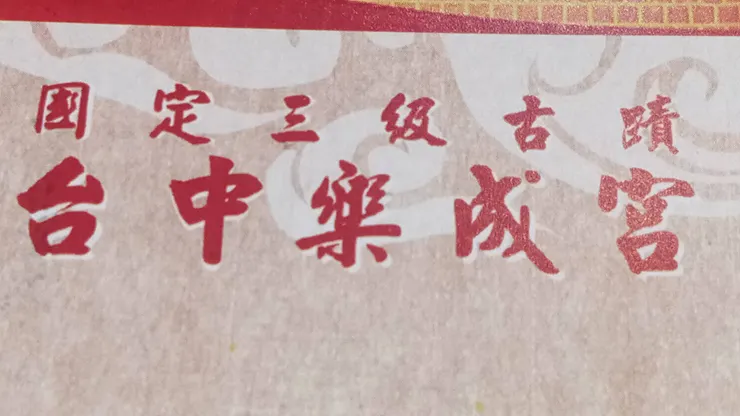 國定三級古蹟
台中樂成宮